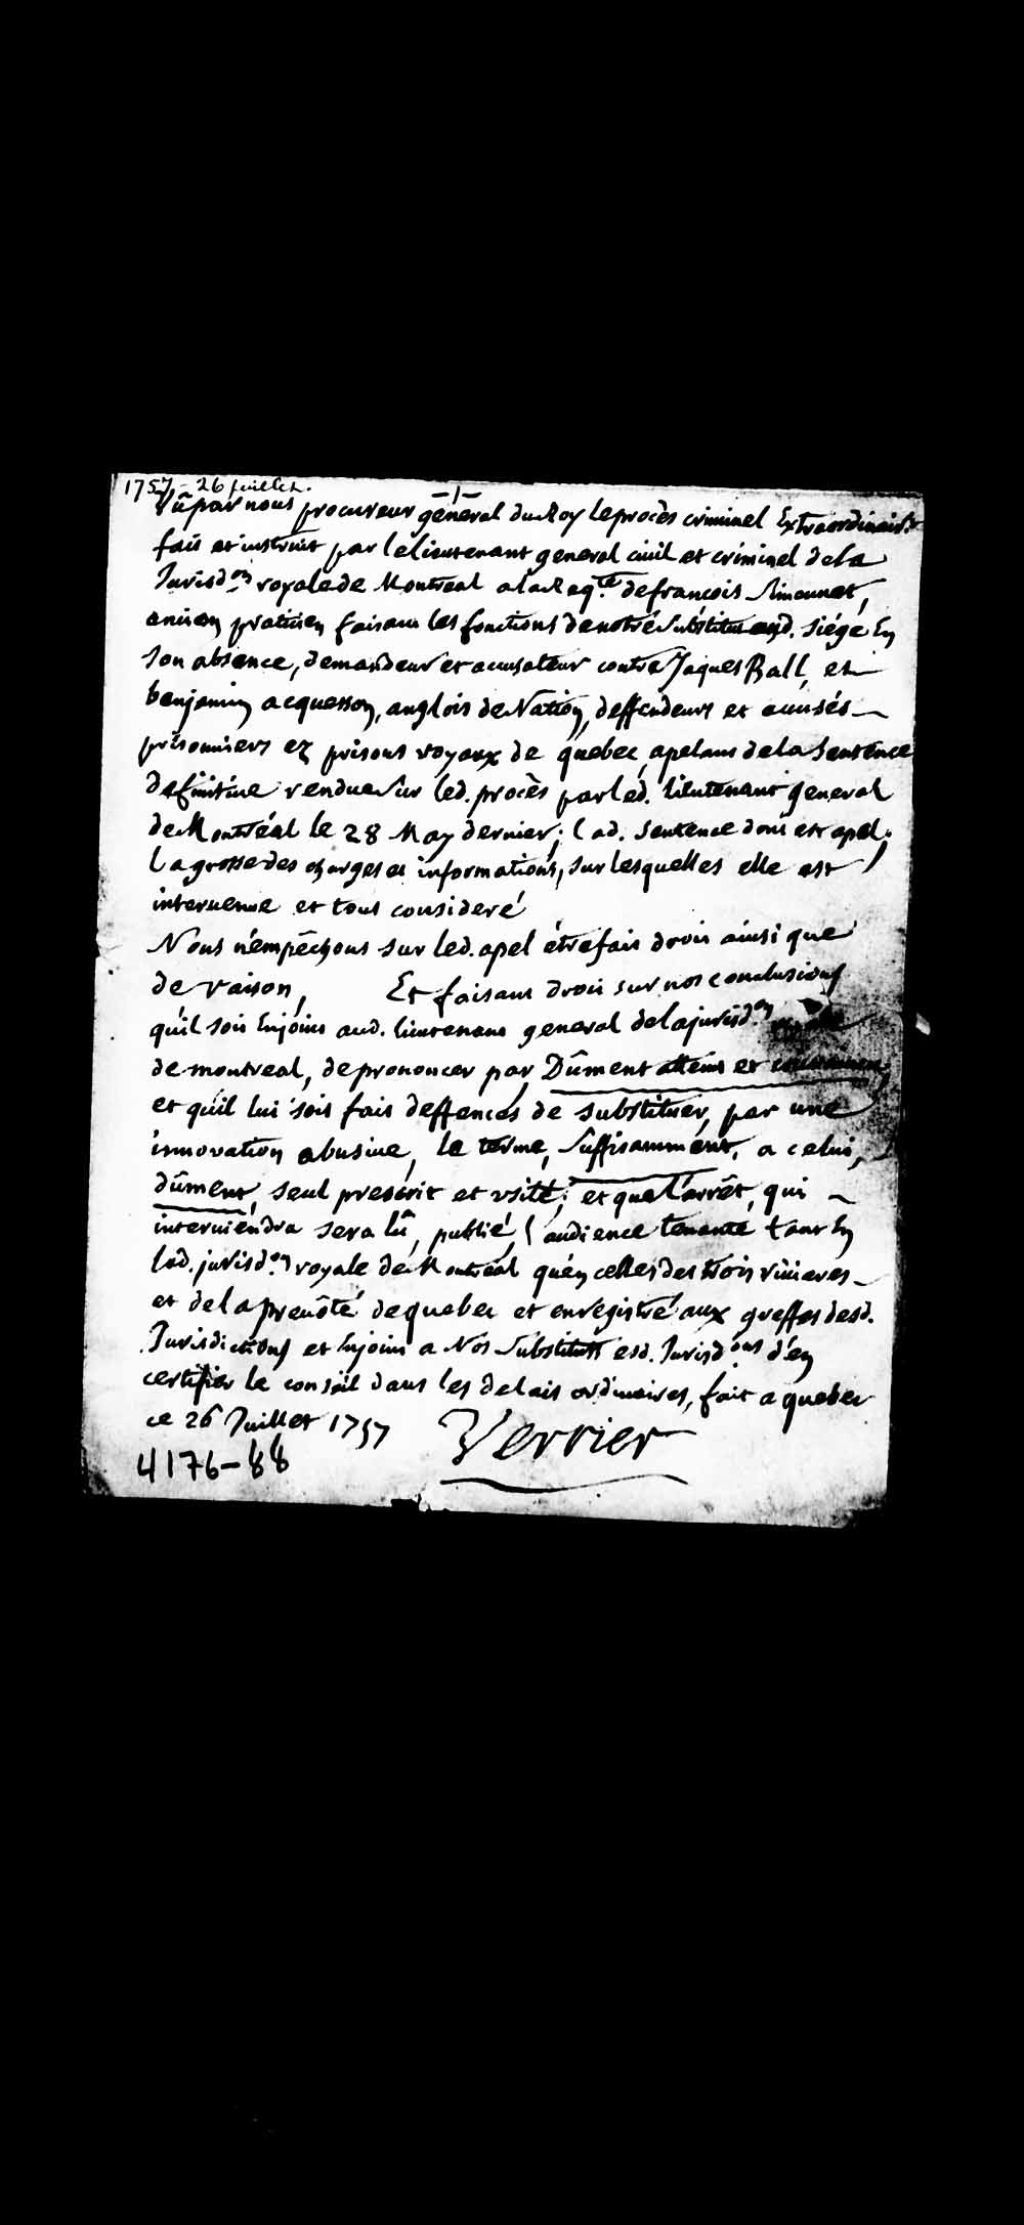 1757 - 26 juillet.
Vû par nous procureur général du Roy le procès criminel Extraordinairt
fait et instruit par le lieutenant general civil et criminel de la
Jurisd.on royale de Montreal a la Req.te de françois Simonnet,
ancien praticien faisant les fonctions de notre Substitut aud. siége En
son absence, demandeur et accusateur contre Jaques Ball, et
benjamin acquesson, anglois de Nation, deffendeurs et accusés
prisonniers ez prisons royaux de quebec, apelans de la Sentence
definitive rendue Sur led. procès par led. lieutenant general
de Montréal le 28 May dernier; lad. Sentence dont est apel;
la grosse des charges et informations, sur lesquelles elle est
intervenue et tout consideré
Nous n'empêchons sur led. apel être fait droit ainsi que
de raison, Et faisant droit sur nos conclusions
qu'il soit Enjoint aud. lieutenant general de la jurisd.on
de montreal, de prononcer par Dûment atteint et convaincu,
et qu'il lui soit fait deffences de substituer, par une
innovation abusive, le terme, Suffisamment, a celui,
dûment, seul prescrit et usité; et que l'arrêt, qui
interviendra sera lû, publié, l'audience tenante tant En
lad. jurisd.on royale de Montréal qu'en celles des trois rivieres
et de la prevôté de quebec et enregistré aux greffes desd.
Jurisdictions et Enjoint a Nos Substituts esd. Jurisd.ons d'en
certifier le conseil dans les delais ordinaires, fait a quebec
ce 26 Juillet 1757 Verrier
4176-88